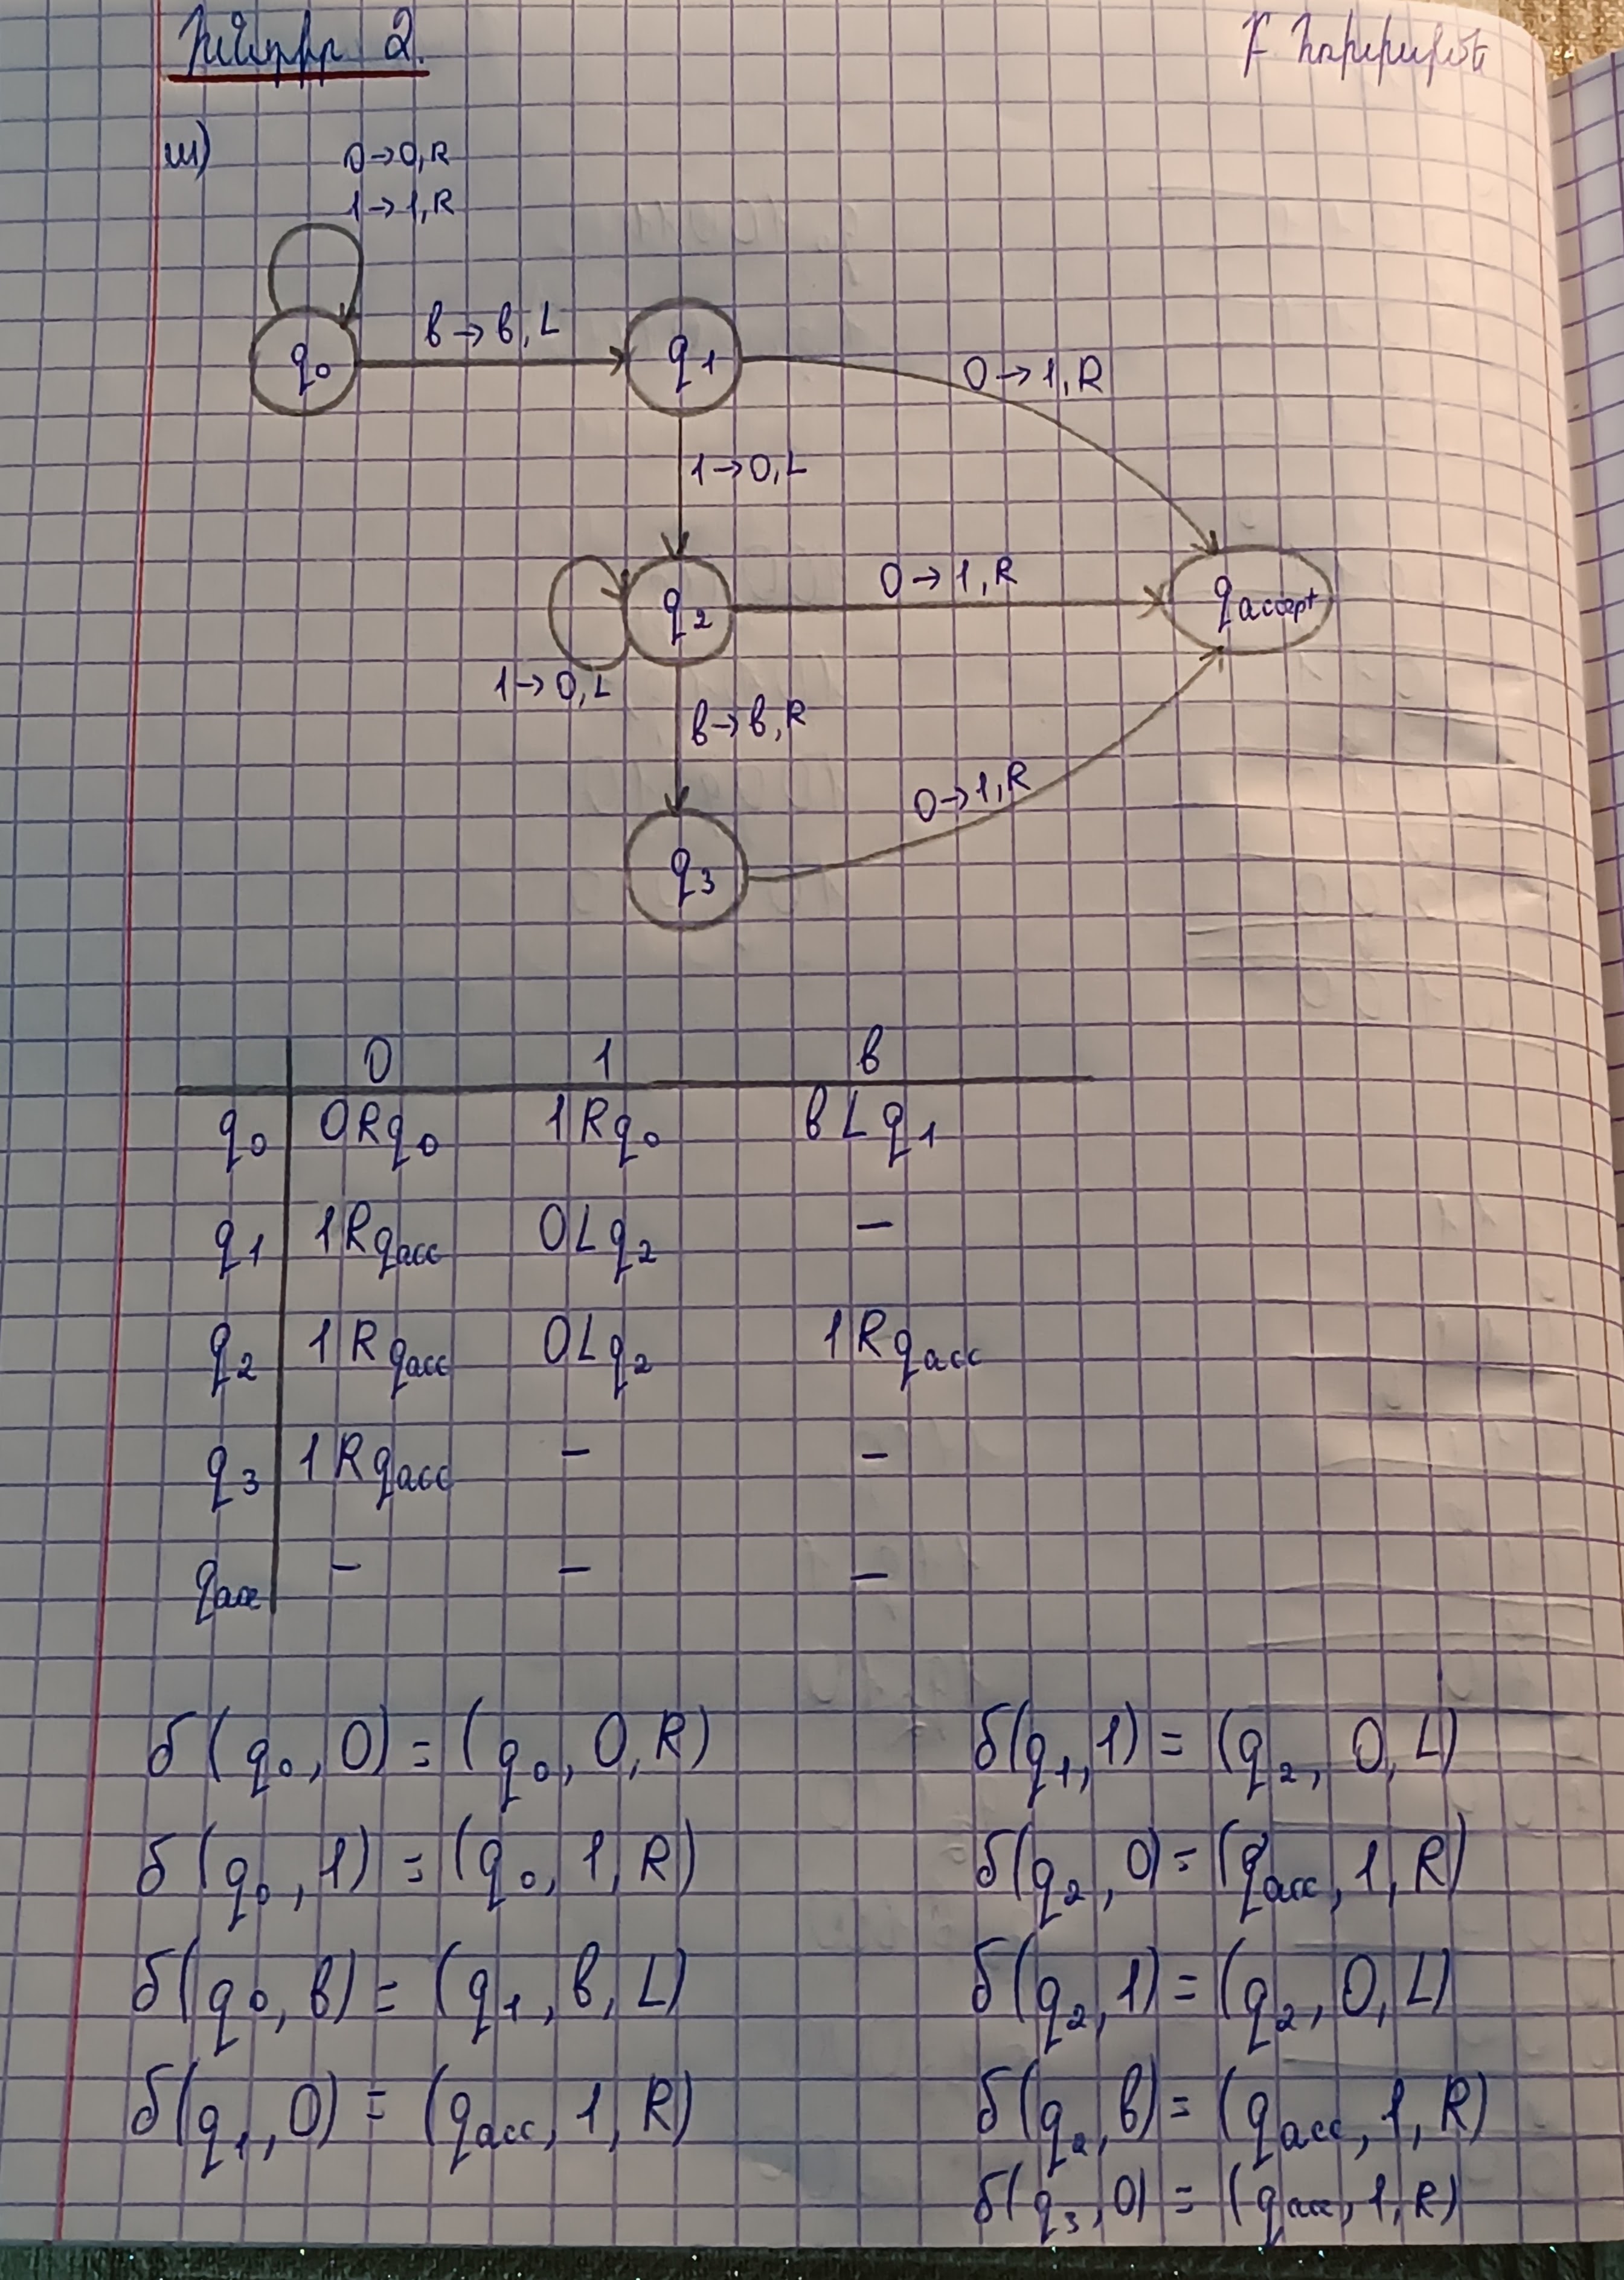 Խնդիր 2.
ա)
0→0,R
1→1,R
q0
b→b,L
q1
0→1,R
1→0,L
q2
0→1,R
qaccept
1→0,L
b→b,R
0→1,R
q3
0 1 b
q0 0Rq0 1Rq0 bLq1
q1 1Rqacc 0Lq2 –
q2 1Rqacc 0Lq2 1Rqacc
q3 1Rqacc – –
qacc – – –
δ(q0,0)=(q0,0,R)
δ(q0,1)=(q0,1,R)
δ(q0,b)=(q1,b,L)
δ(q1,0)=(qacc,1,R)
δ(q1,1)=(q2,0,L)
δ(q2,0)=(qacc,1,R)
δ(q2,1)=(q2,0,L)
δ(q2,b)=(qacc,1,R)
δ(q3,0)=(qacc,1,R)